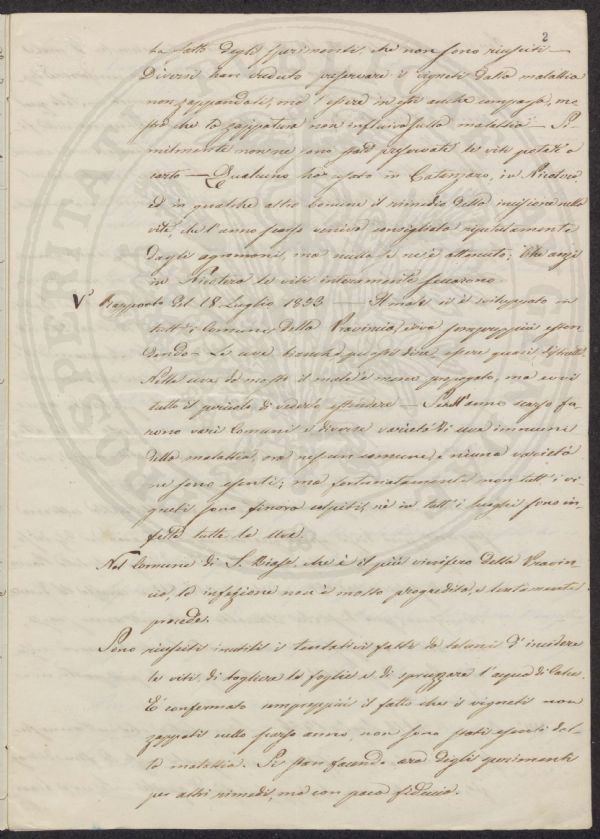 2
ha fatto degli sperimenti, che non sono riusciti —
Diversi han creduto preservare i vigneti dalla malattia
non zappandoli, ma l'essere in essi anche comparsa, mo-
strò che la zappatura non influiva sulla malattia — Si-
milmente non ne sono state preservate le viti potate a
corto — Qualcuno ha usato in Catanzaro, in Nicotera
ed in qualche altro Comune il rimedio della incisione nelle
viti, che l'anno scorso veniva consigliato ripetutamente
dagli agronomi, ma nulla se ne è ottenuto; Che anzi
in Nicotera le viti interamente seccarono
V° Rapporto del 18 Luglio 1853 — Il male si è sviluppato in
tutt'i Comuni della Provincia, e va sempreppiù esten-
dendo — Le uve bianche possono dirsi essere quasi distrutte.
Nelle uve da mosto il male è meno propagato, ma evvi
tutto il pericolo di vederlo estendere — Nell'anno scorso fu-
rono vari Comuni e diverse varietà di uva immuni
della malattia, ora nessun comune, e niuna varietà
ne sono esenti; ma fortunatamente non tutt'i vi-
gneti sono finora colpiti, nè in tutt'i luoghi sono in-
fette tutte le uve.
Nel Comune di S. Biase, che è il più vinifero della Provin-
cia, la infezione non è molto progredita, e lentamente
procede.
Sono riusciti inutili i tentativi fatti da taluni d'incidere
le viti, di togliere le foglie e di spruzzare l'acqua di Calce.
È confermato sempreppiù il fatto che i vigneti non
zappati nello scorso anno, non sono stati esenti del-
la malattia. Si stan facendo ora degli sperimenti
per altri rimedi, ma con poca fiducia.
PROSPERITATI PUBLICAE